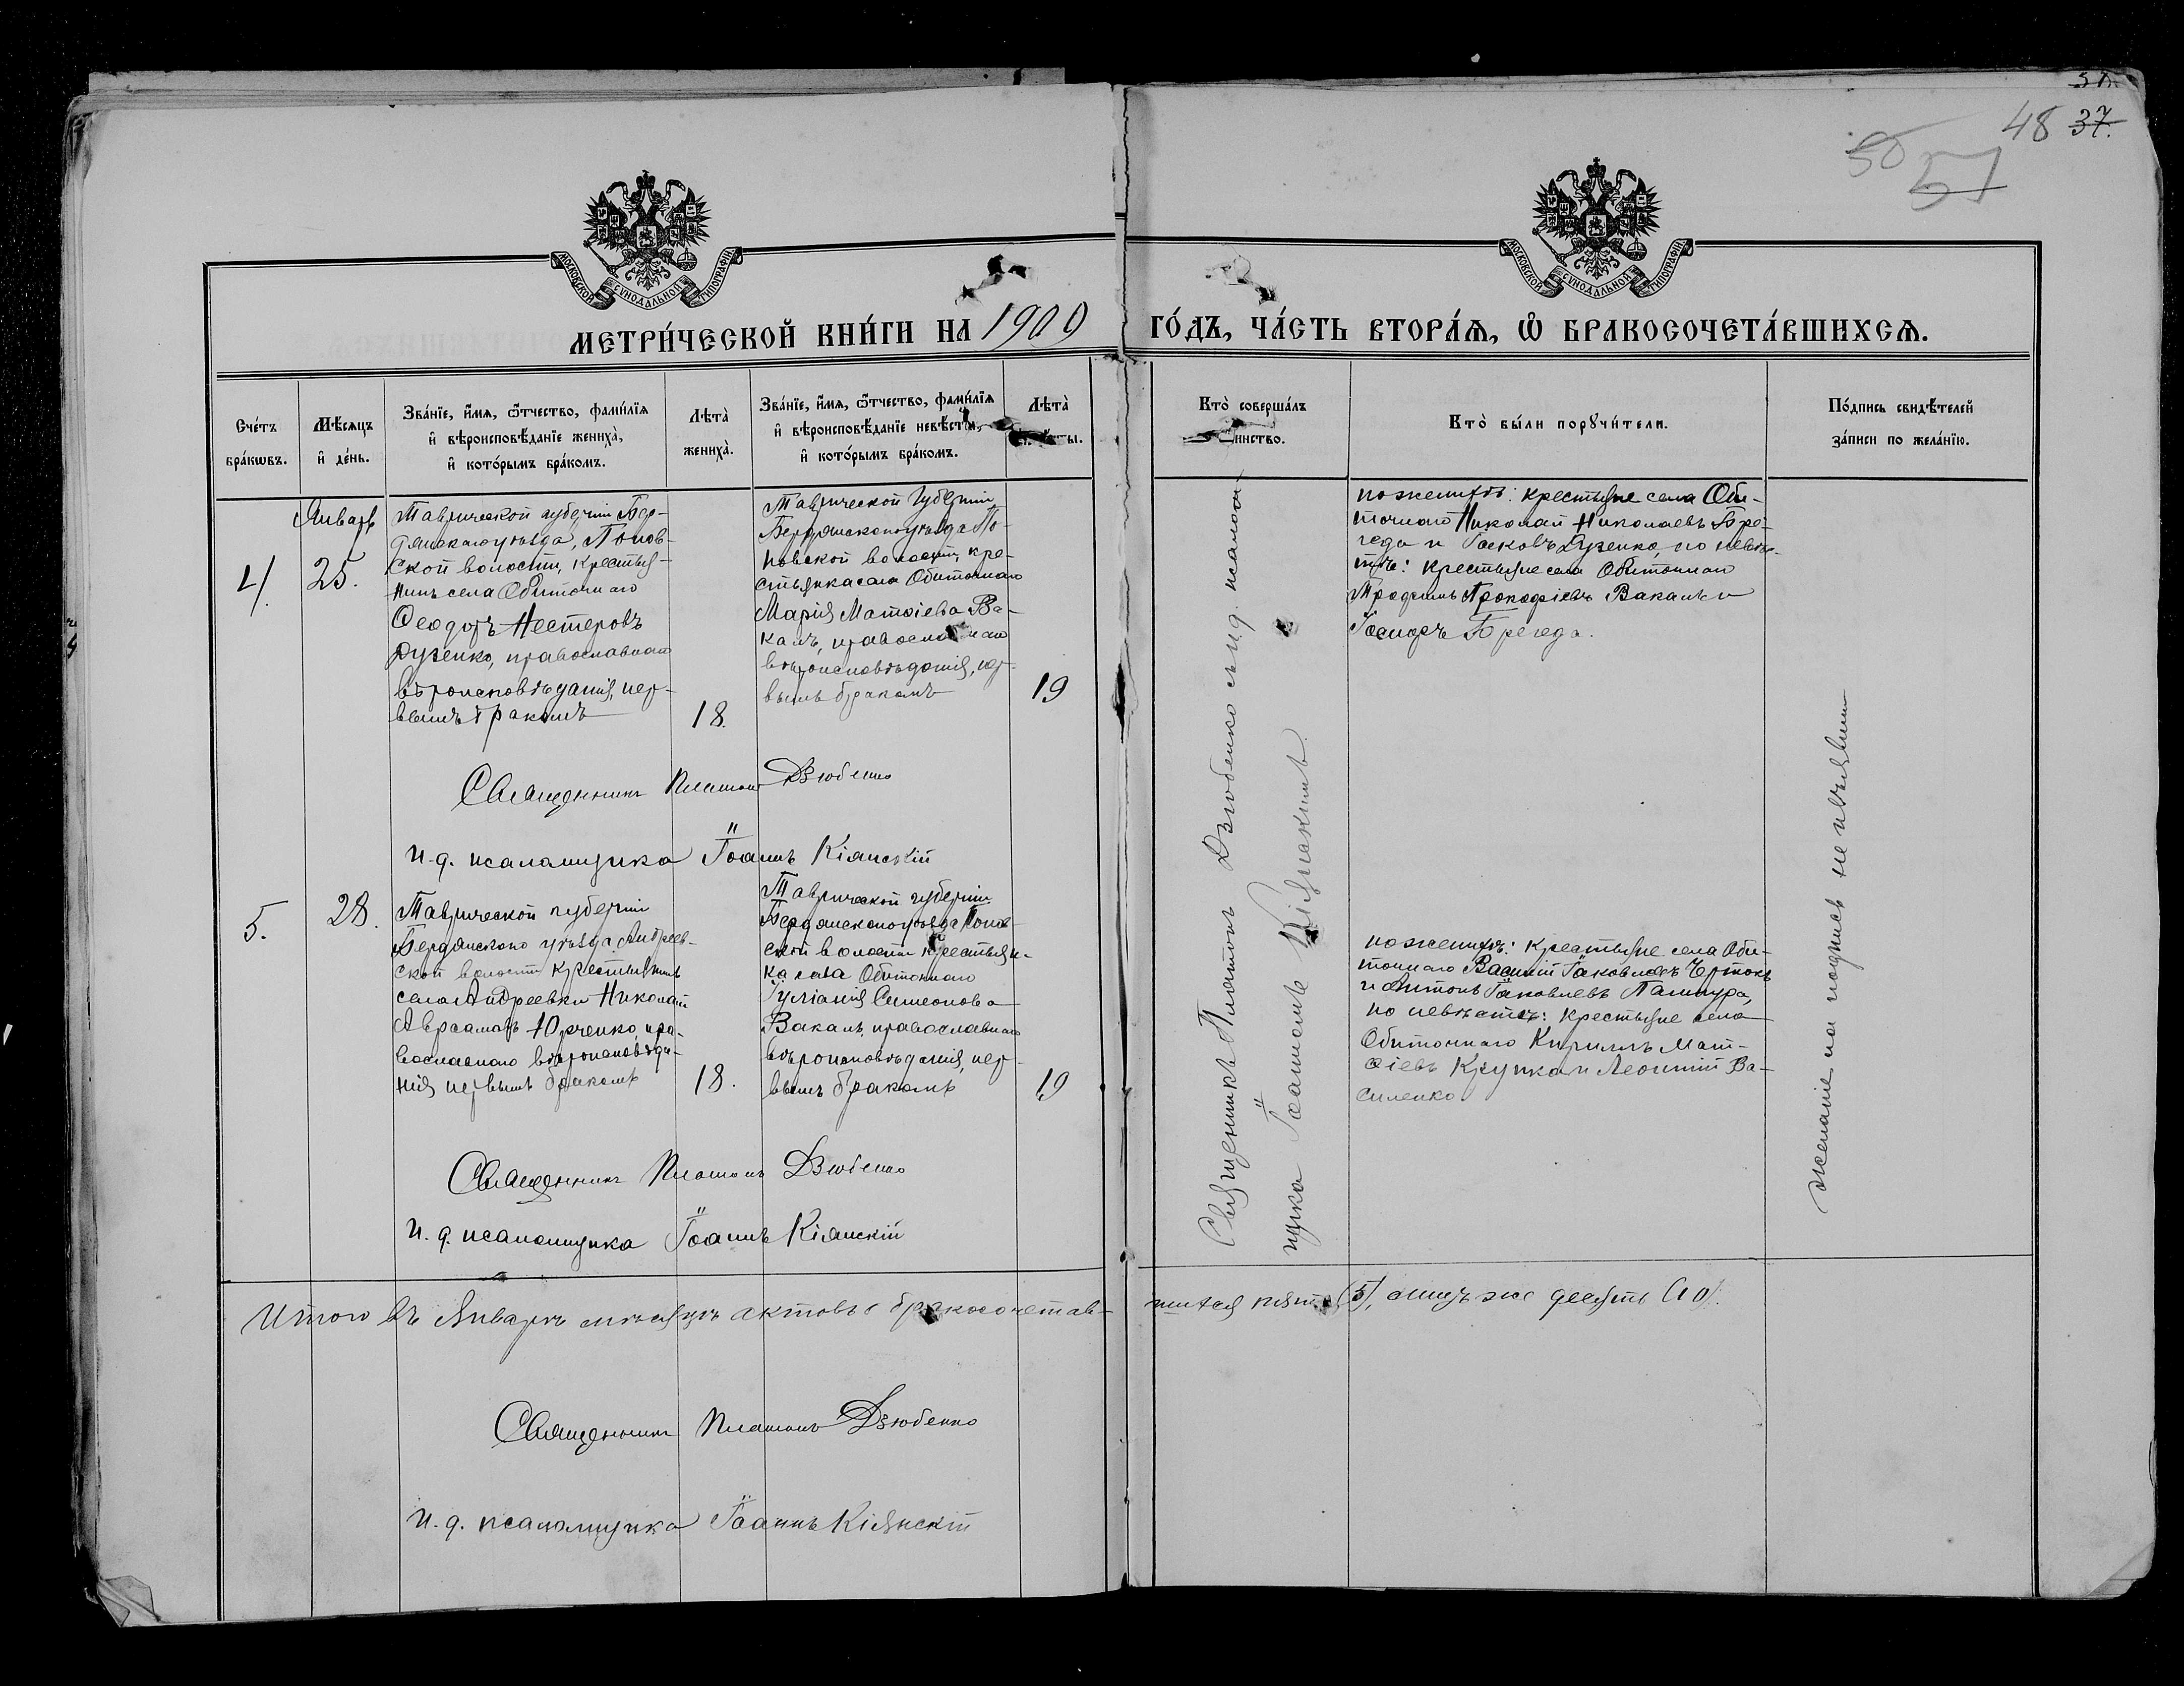 48 37.
50 51
МОСКОВСКОЙ СУНОДАЛЬНОЙ ТИПОГРАФІИ.
МОСКОВСКОЙ СУНОДАЛЬНОЙ ТИПОГРАФІИ.
МЕТРИ́ЧЕСКОЙ КНИ́ГИ НА 1909 ГО́ДЪ, ЧА́СТЬ ВТОРА́Я, Ѽ БРАКОСОЧЕТА́ВШИХСЯ.
Сче́тъ
бра́кѡвъ.
Мѣ́сяцъ
и҆ де́нь.
Зва́нїе, и҆́мя, ѻ҆́тчество, фами́лїя
и҆ вѣроисповѣ́данїе жениха̀,
и҆ кото́рымъ бра́комъ.
Лѣта̀
жениха̀.
Зва́нїе, и҆́мя, ѻ҆́тчество, фами́лїя
и҆ вѣроисповѣ́данїе невѣ́сты,
и҆ кото́рымъ бра́комъ.
Лѣта̀
Кто̀ соверша́лъ
таинство.
Кто̀ бы́ли порꙋчи́тели.
По́дпись свидѣ́телей
за́писи по жела́нїю.
4.
Январь
25.
Таврической губерніи Бер-
дянскаго уѣзда, Попов-
ской волости, крестья-
нинъ села Обиточнаго
Ѳеодотъ Нестеровъ
Рузенко, православнаго
вѣроисповѣданія, пер-
вымъ бракомъ
18.
Таврической губерніи
Бердянскаго уѣзда По-
повской волости, кре-
стьянка села Обиточнаго
Марія Матѳіева Ва-
калъ, православнаго
вѣроисповѣданія, пер-
вымъ бракомъ
19
Священникъ Платонъ Дзюбенко съ и.д. псалом-
щика Іоанномъ Кіянскимъ.
по женихѣ: крестьяне села Оби-
точнаго Николай Николаевъ Бре-
геда и Іаковъ Рузенко, по невѣс-
тѣ: крестьяне села Обиточнаго
Трофимъ Прокофіевъ Вакалъ и
Іосифъ Брегеда.
желаніе на подпись не изъявили
Священникъ Платонъ Дзюбенко
И. д. псаломщика Іоаннъ Кіянскій
5.
28.
Таврической губерніи
Бердянскаго уѣзда, Андреев-
ской волости крестьянинъ
села Андреевки Николай
Авраамовъ Юрченко, пра-
вославнаго вѣроисповѣда-
нія первымъ бракомъ
18.
Таврической губерніи
Бердянскаго уѣзда Попов-
ской волости крестьян-
ка села Обиточнаго
Іуліанія Симеонова
Вакалъ, православнаго
вѣроисповѣданія, пер-
вымъ бракомъ
19
по женихѣ: крестьяне села Оби-
точнаго Василій Іаковлевъ Чертокъ
и Антонъ Іаковлевъ Палшура,
по невѣстѣ: крестьяне села
Обиточнаго Кириллъ Мат-
ѳіевъ Крупка и Леонтій Ва-
силенко
Священникъ Платонъ Дзюбенко
И. д. псаломщика Іоаннъ Кіянскій
Итого въ Январѣ мѣсяцѣ актовъ о бракосочетав-
шихся пять (5), лицъ же десять (10).
Священникъ Платонъ Дзюбенко
И. д. псаломщика Іоаннъ Кіянскій